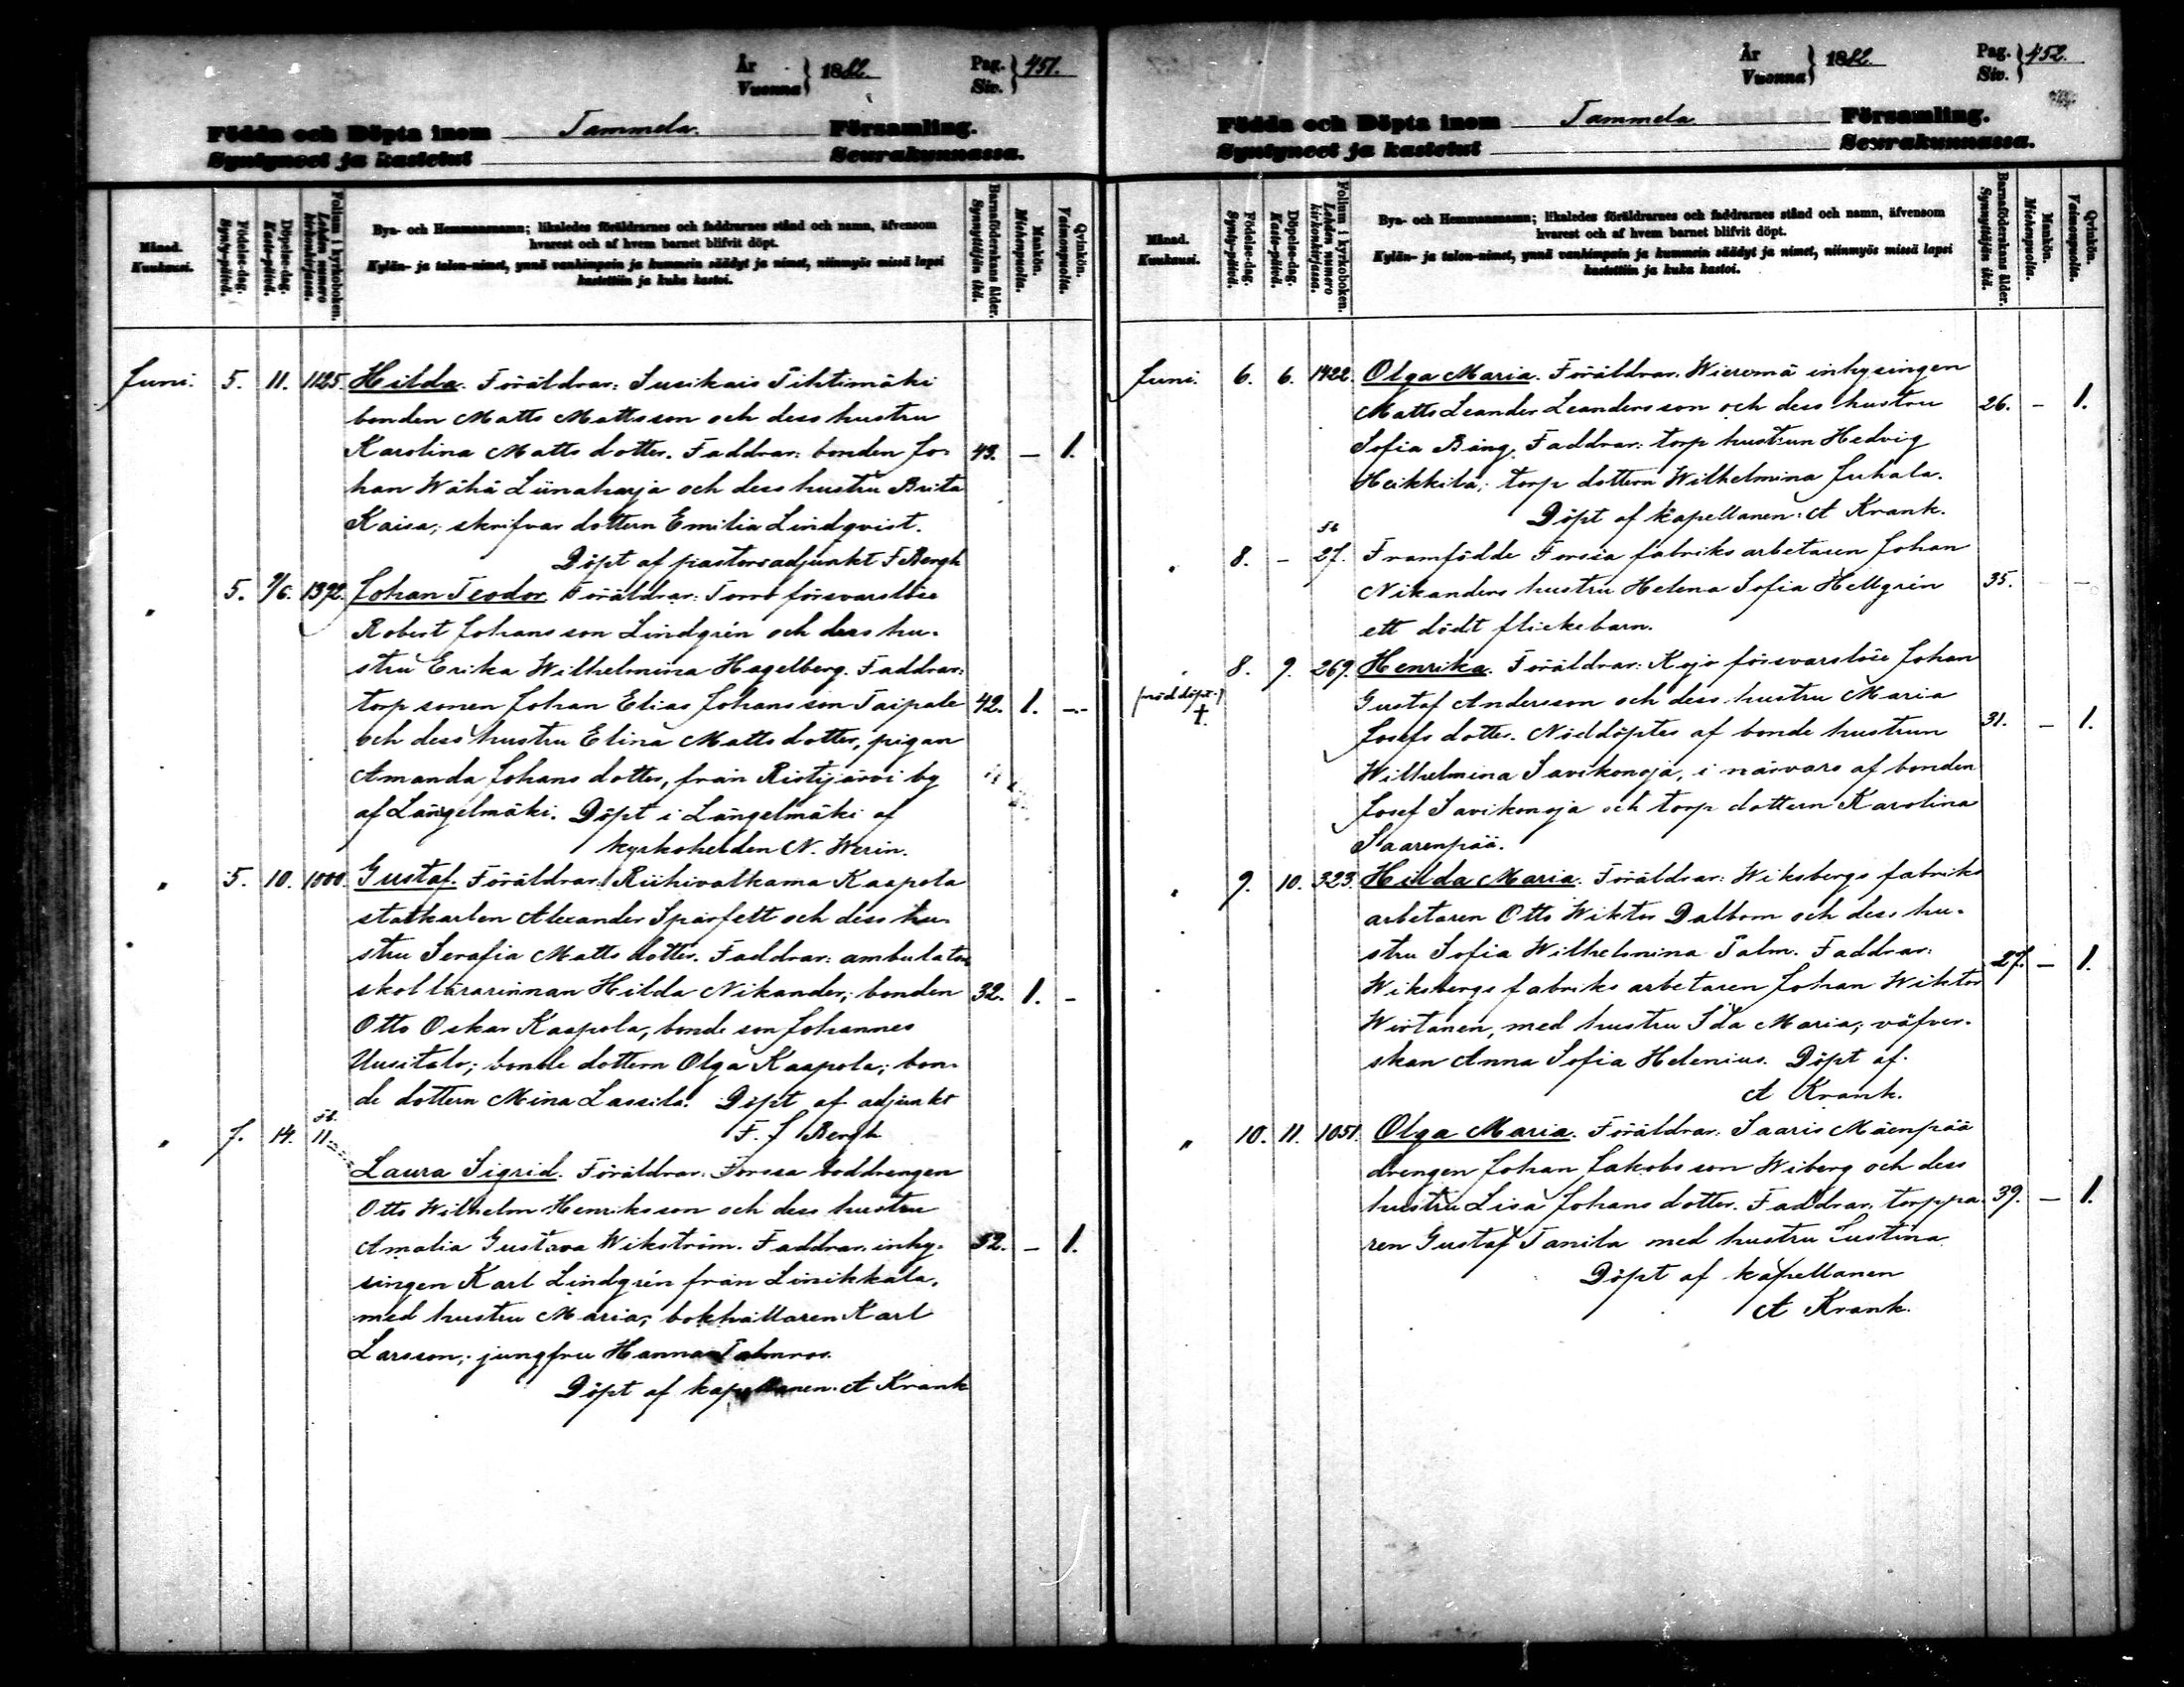 År
Vuonna } 1882. Pag.
Siv. } 451.
Födda och Döpta inom Tammela. Församling.
Syntyneet ja kastetut Seurakunnassa.
Månad.
Kuukausi.
Födelse-dag.
Synty-päivä.
Döpelse-dag.
Kaste-päivä.
Folium i kyrkoboken.
Lehden numero kirkonkirjassa.
Bya- och Hemmansnamn; likaledes föräldrarnes och faddrarnes stånd och namn, äfvensom
hvarest och af hvem barnet blifvit döpt.
Kylän- ja talon-nimet, ynnä vanhimpain ja kummein säädyt ja nimet, niinmyös missä lapsi
kastettiin ja kuka kastoi.
Barnaföderskans ålder.
Synnyttäjän ikä.
Mankön.
Miehenpuolta.
Qvinkön.
Vaimonpuolta.
Juni. 5. 11. 1125. Hilda. Föräldrar: Susikais Tihtimäki
bonden Matts Mattsson och dess hustru
Karolina Matts dotter. Faddrar: bonden Jo- 43. — 1.
han Wähä Liinaharja och dess hustru Brita
Kaisa; skrifvar dottern Emilia Lindqvist.
Döpt af pastorsadjunkt F Bergh
" 5. 9/6. 1392. Johan Teodor. Föräldrar: Torro försvarslöse
Robert Johansson Lindgrén och dess hu-
stru Erika Wilhelmina Hagelberg. Faddrar:
torp sonen Johan Elias Johansson Taipale 42. 1. —
och dess hustru Elina Matts dotter, pigan
Amanda Johans dotter, från Ristijärvi by
af Längelmäki. Döpt i Längelmäki af
kyrkoherden N. Werin.
" 5. 10. 1000. Gustaf. Föräldrar: Riihivalkama Kaapola
statkarlen Alexander Sparfelt och dess hu-
stru Serafia Matts dotter. Faddrar: ambulator.
skollärarinnan Hilda Nikander; bonden 32. 1. —
Otto Oskar Kaapola, bonde son Johannes
Uusitalo; bonde dottern Olga Kaapola; bon-
de dottern Mina Lassila. Döpt af adjunkt
F. J Bergh
" 7. 14. 11. Laura Sigrid. Föräldrar: Forssa boddrengen
Otto Wilhelm Henriksson och dess hustru
Amalia Gustava Wikström. Faddrar: inhy- 32. — 1.
singen Karl Lindgrén från Linikkala,
med hustru Maria; bokhållaren Karl
Larsson; jungfru Hanna Talmros.
Döpt af kapellanen A Krank
År
Vuonna } 1882. Pag.
Siv. } 452.
Födda och Döpta inom Tammela Församling.
Syntyneet ja kastetut Seurakunnassa.
Månad.
Kuukausi.
Födelse-dag.
Synty-päivä.
Döpelse-dag.
Kaste-päivä.
Folium i kyrkoboken.
Lehden numero kirkonkirjassa.
Bya- och Hemmansnamn; likaledes föräldrarnes och faddrarnes stånd och namn, äfvensom
hvarest och af hvem barnet blifvit döpt.
Kylän- ja talon-nimet, ynnä vanhimpain ja kummein säädyt ja nimet, niinmyös missä lapsi
kastettiin ja kuka kastoi.
Barnaföderskans ålder.
Synnyttäjän ikä.
Mankön.
Miehenpuolta.
Qvinkön.
Vaimonpuolta.
Juni. 6. 6. 1422. Olga Maria. Föräldrar: Wieremä inhysingen
Matts Leander Leandersson och dess hustru 26. — 1.
Sofia Bäng. Faddrar: torp hustrun Hedvig
Heikkilä; torp dottern Wilhelmina Juhala.
Döpt af kapellanen A Krank.
" 8. — 27. Framfödde Forssa fabriks arbetaren Johan
Nikanders hustru Helena Sofia Hellgrén 35. — —
ett dödt flickebarn.
" 8. 9. 269. Henrika. Föräldrar: Kojo försvarslöse Johan
(nöddöpt.) † Gustaf Andersson och dess hustru Maria
Josefs dotter. Nöddöptes af bonde hustrun 31. — 1.
Wilhelmina Savikonoja, i närvaro af bonden
Josef Savikonoja och torp dottern Karolina
Saarenpää.
" 9. 10. 323. Hilda Maria. Föräldrar: Wiksbergs fabriks
arbetaren Otto Wiktor Dalbom och dess hu-
stru Sofia Wilhelmina Palm. Faddrar: 27. — 1.
Wiksbergs fabriks arbetaren Johan Wiktor
Wirtanen, med hustru Ida Maria; väfver-
skan Anna Sofia Helenius. Döpt af
A Krank.
" 10. 11. 1051. Olga Maria. Föräldrar: Saaris Mäenpää
drengen Johan Jakobsson Wiberg och dess
hustru Lisa Johans dotter. Faddrar: torppa- 39. — 1.
ren Gustaf Tanila med hustru Justina
Döpt af kapellanen
A Krank.